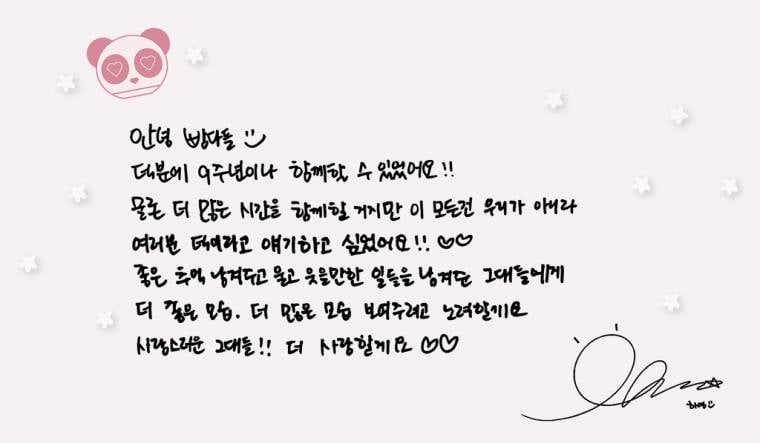 안녕 빵다들
덕분에 9주년이나 함께할 수 있었어요!!
물론 더 많은 시간을 함께할 거지만 이 모든건 우리가 아니라
여러분 덕이라고 얘기하고 싶었어요!! ♡♡
좋은 추억 남겨두고 울고 웃을만한 일들을 남겨둔 그대들에게
더 좋은 모습. 더 많은 모습 보여주려고 노력할게요
사랑스러운 그대들!! 더 사랑할게요 ♡♡
하영